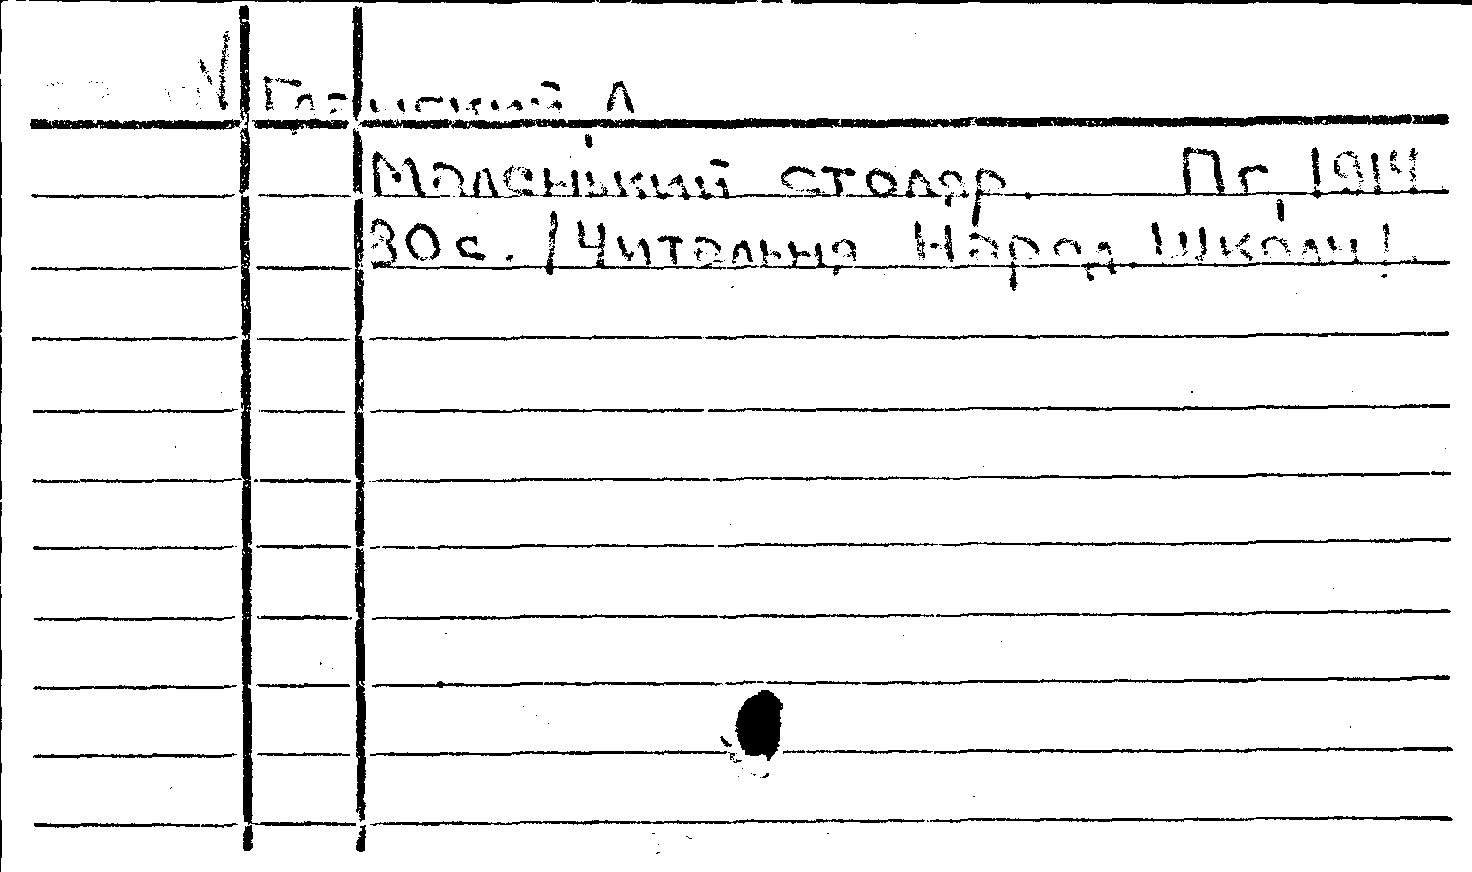 А.
Маленький столяр. Пг 1914
30с. /Читальня Народ. Школы/